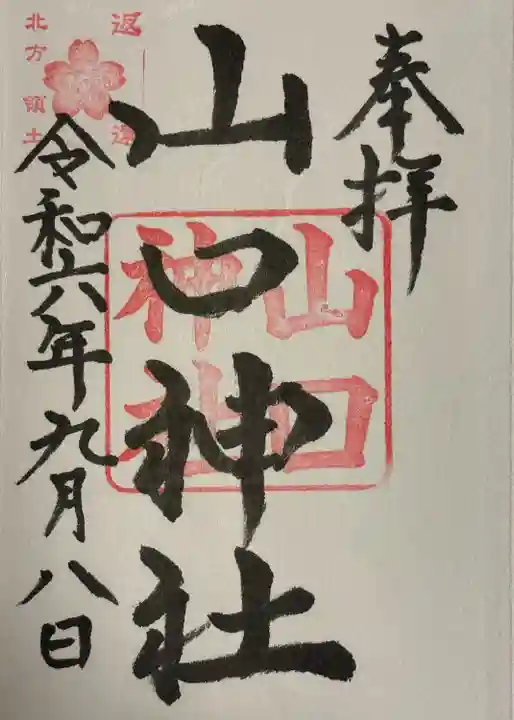 奉拝
山口神社
山口神社
令和六年九月八日
北方領土
返還